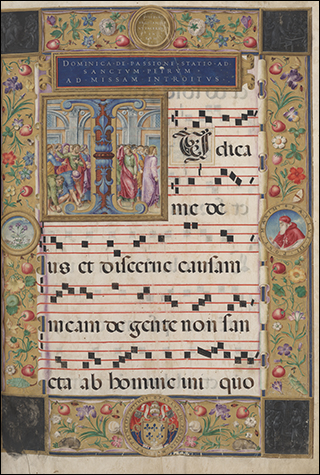 DOMINICA·DE·PASSIONE·STATIO·AD
SANCTVM·PETRVM·
AD·MISSAM·INTROITVS·
IUdica
me de
us et discerne causam
meam de gente non san
cta ab homine ini quo